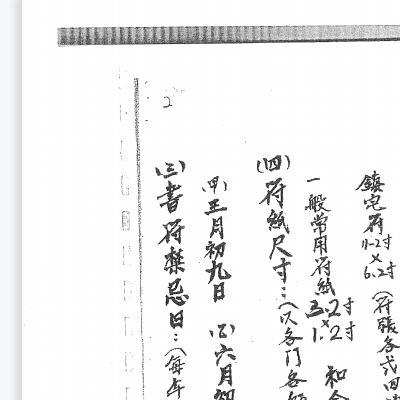 鎮宅符11.2寸×6.2寸(符張各式
(四)符紙尺寸:(以各門各
一般常用符紙3.2寸×1.2寸 和合
(三)書符禁忌日:(每年
(甲)正月初九日 (乙)六月初
2